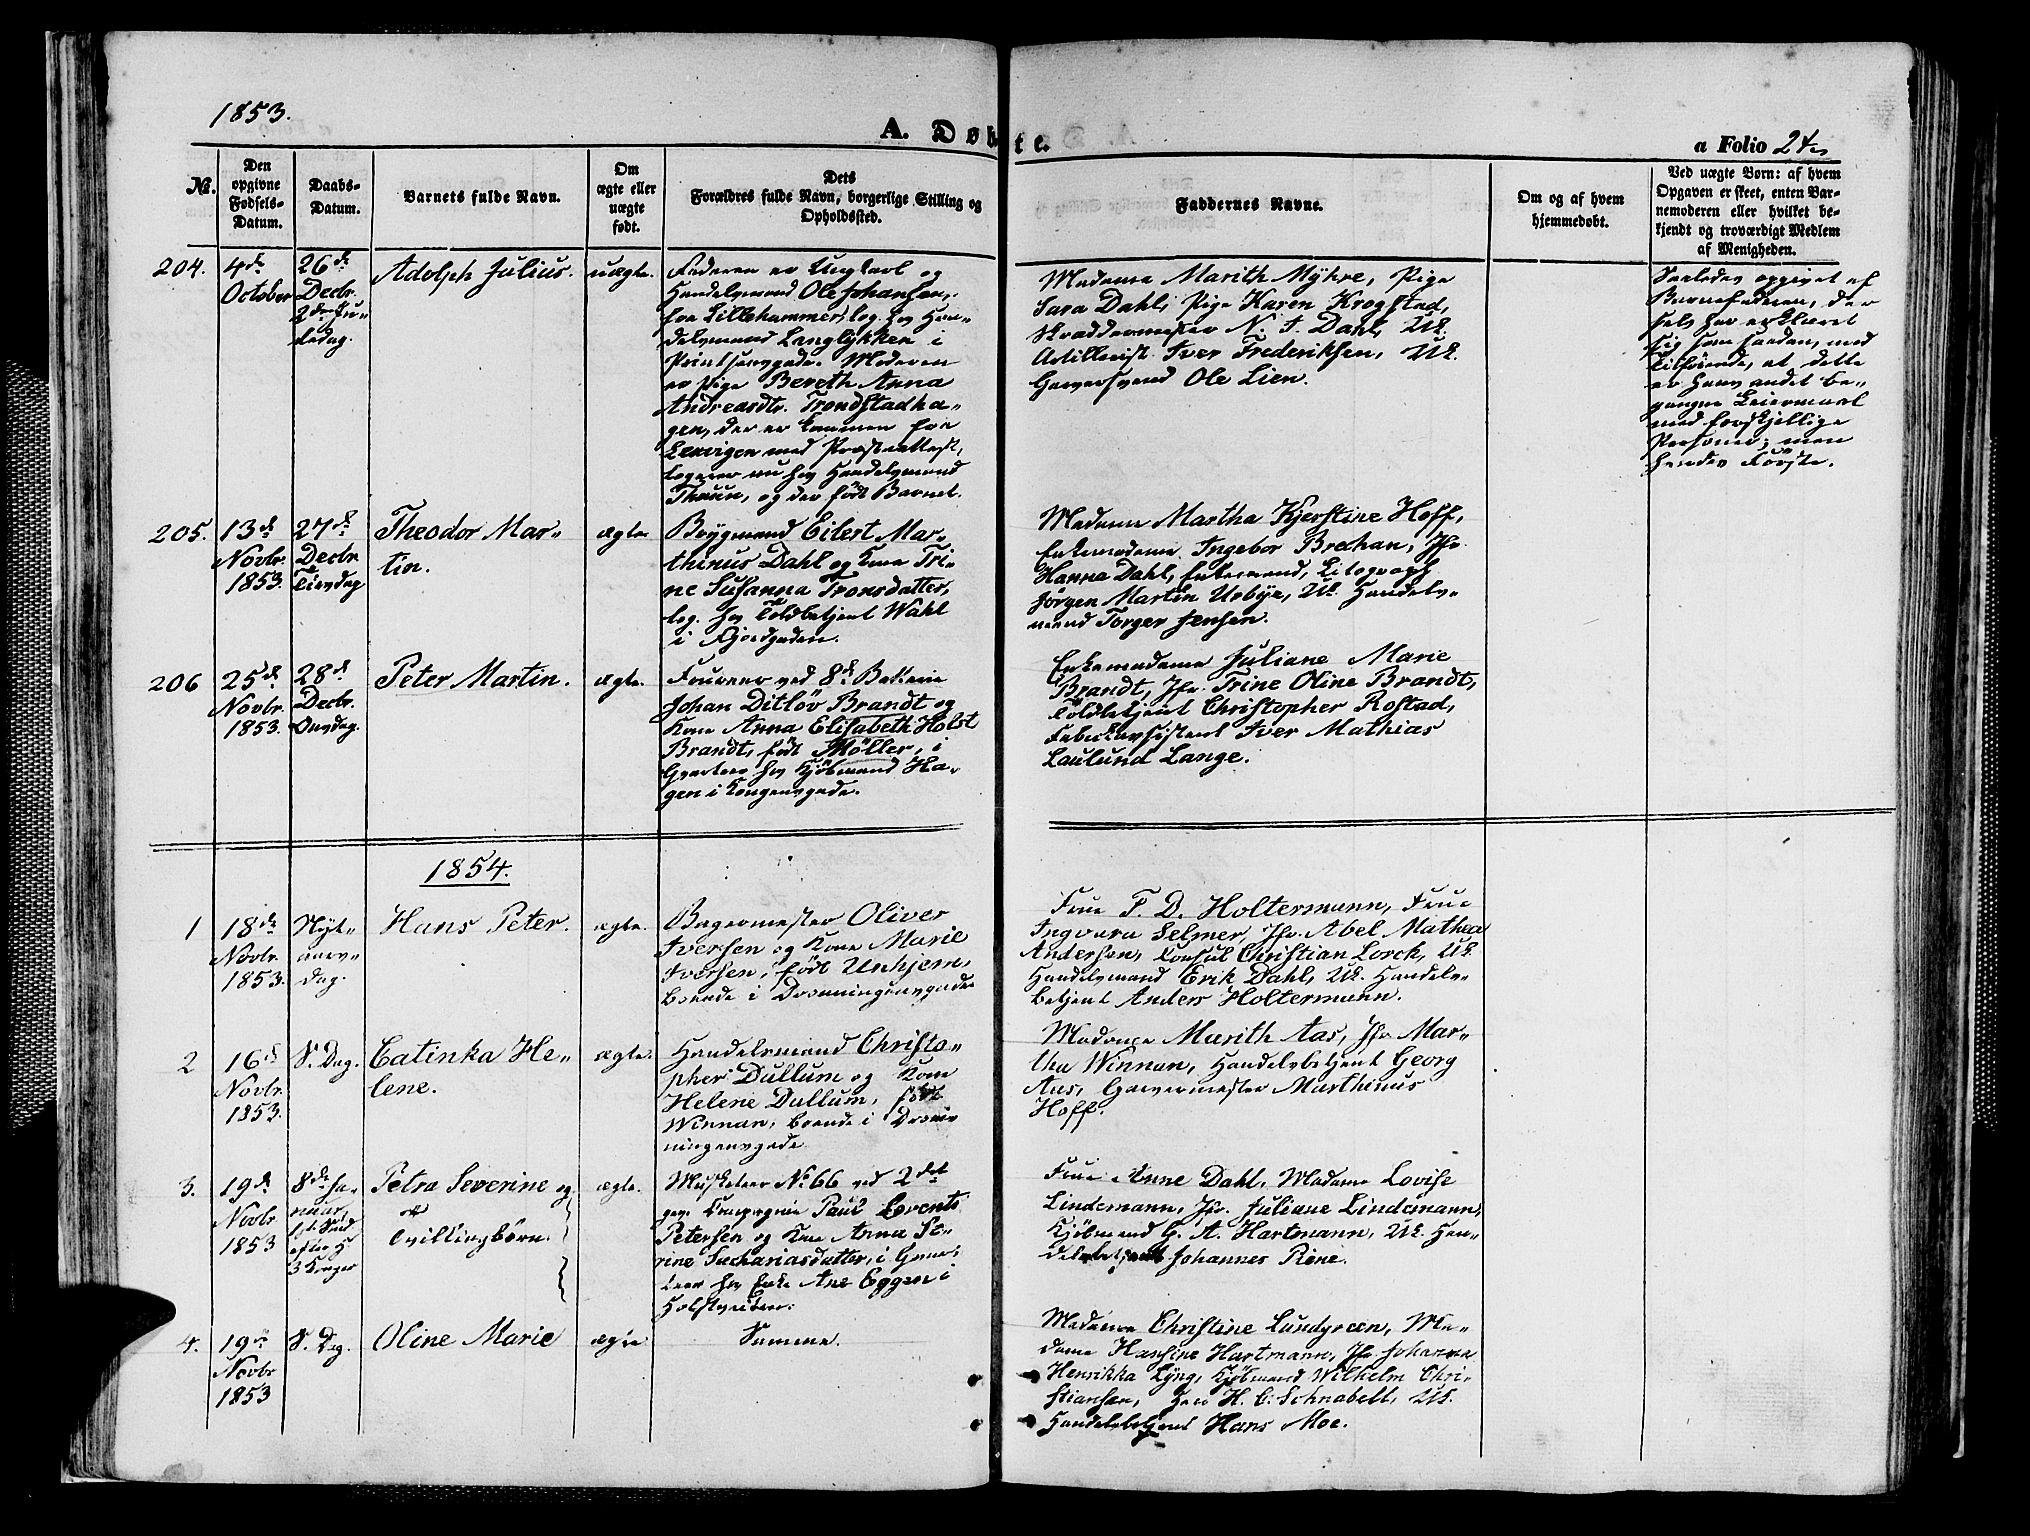 1853.
A. Døbte.
a Folio 24
No.
Den
opgivne
Fødsels-
Datum.
Daabs-
Datum.
Barnets fulde Navn.
Om
ægte eller
uægte
født.
Dets
Forældres fulde Navn, borgerlige Stilling og
Opholdssted.
Faddernes Navne.
Om og af hvem
hjemmedøbt.
Ved uægte Børn: af hvem
Opgaven er skeet, enten Bar-
nemoderen eller hvilket be-
kjendt og troværdigt Medlem
af Menigheden.
204.
4de
October
26de
Decbr.
2den Ju-
ledag.
Adolph Julius.
uægte.
Faderen er Ungkarl og
Handelsmand Ole Johansen,
fra Lillehammer, log. hos Han-
delsmand Langlykken i
Prindsensgade. Moderen
er Pige Bereth Anna
Andreasdtr. Trondstadha-
gen, der er kommen fra
Lexvigen med Præsteattest,
logerer nu hos Handelsmand
Thaun, og der født Barnet.
Madame Marith Myhre, Pige
Sara Dahl, Pige Karen Krogstad,
Skræddermester N. J. Dahl, Uk.
Artillerist Iver Frederiksen, Uk.
Garversvend Ole Lien.
Saaledes opgivet af
Barnefaderen, der
selv har erklæret
sig som saadan, med
Tilføiende, at dette
er hans andet be-
gangne Leiermaal
med forskjellige
Personer; men
hendes Første.
205.
13de
Novbr.
1853.
27de
Decbr.
Tirsdag
Theodor Mar-
tin.
ægte
Brygmand Eilert Mar-
thinus Dahl og Kone Tri-
ne Susanna Tronsdatter,
log. hos Toldbetjent Wahl
i Fjordgaden.
Madame Martha Kjerstine Hoff,
Enkemadame Ingebor Brechan, Jfr.
Hanna Dahl, Enkemand, Litograph
Jørgen Martin Urbye, Uk. Handels-
mand Torger Jensen.
206
25de
Novbr.
1853.
28de
Decbr.
Onsdag.
Peter Martin.
ægte.
Fourer ved 8de Batterie
Johan Ditløv Brandt og
Kone Anna Elisabeth Holst
Brandt, født Møller, i
Qvarteer hos Kjøbmand Ha-
gen i Kongensgade.
Enkemadame Juliane Marie
Brandt, Jfr. Trine Oline Brandt,
Toldbetjent Christopher Rostad,
Iver Mathias
Laulund Lange.
1854.
1
18de
Novbr.
1853.
Nyt-
aars-
dag.
Hans Peter.
ægte.
Bagermester Oliver
Iversen og Kone Marie
Iversen, født Unhjem,
boende i Dronningensgade
Frue F. D. Holtermann, Frue
Ingvara Selmer, Jfr. Abel Mathea
Andersen, Consul Christian Lorck, Uk.
Handelsmand Erik Dahl, Uk. Handels-
betjent Anders Holtermann.
2
16de
Novbr.
1853.
S. Dag.
Catinka He-
lene.
ægte.
Handelsmand Christo-
pher Dullum og Kone
Helene Dullum, født
Winnan, boende i Dron-
ningensgade
Madame Marith Aas, Jfr. Mar-
tha Winnan, Handelsbetjent Georg
Aas, Garvermester Marthinus
Hoff.
3.
19de
Novbr.
1853
8de Ja-
nuar,
1st Sønd.
efter H.
3 Konger
Petra Severine og
Tvillingbørn.
ægte.
Musketeer No. 66 ved 2det
Compagnie Paul Lorents
Petersen og Kone Anna Se-
rine Sachariasdatter, i Qvar-
teer hos Enke Ane Eggen i
Frue Anne Dahl, Madame Lovise
Lindemann, Jfr. Juliane Lindemann,
Kjøbmand G. A. Hartmann, Uk. Han-
delsbetjent Johannes Rene.
4.
19de
Novbr
1853
S. Dag.
Oline Marie
ægte.
Samme.
Madame Christine Lundgreen, Ma-
dame Hansine Hartmann, Jfr. Johanna
Henrikka Lyng, Kjøbmand Wilhelm Chri-
stiansen, Herr H. C. Schnabell, Uk.
Handelsbetjent Hans Moe.